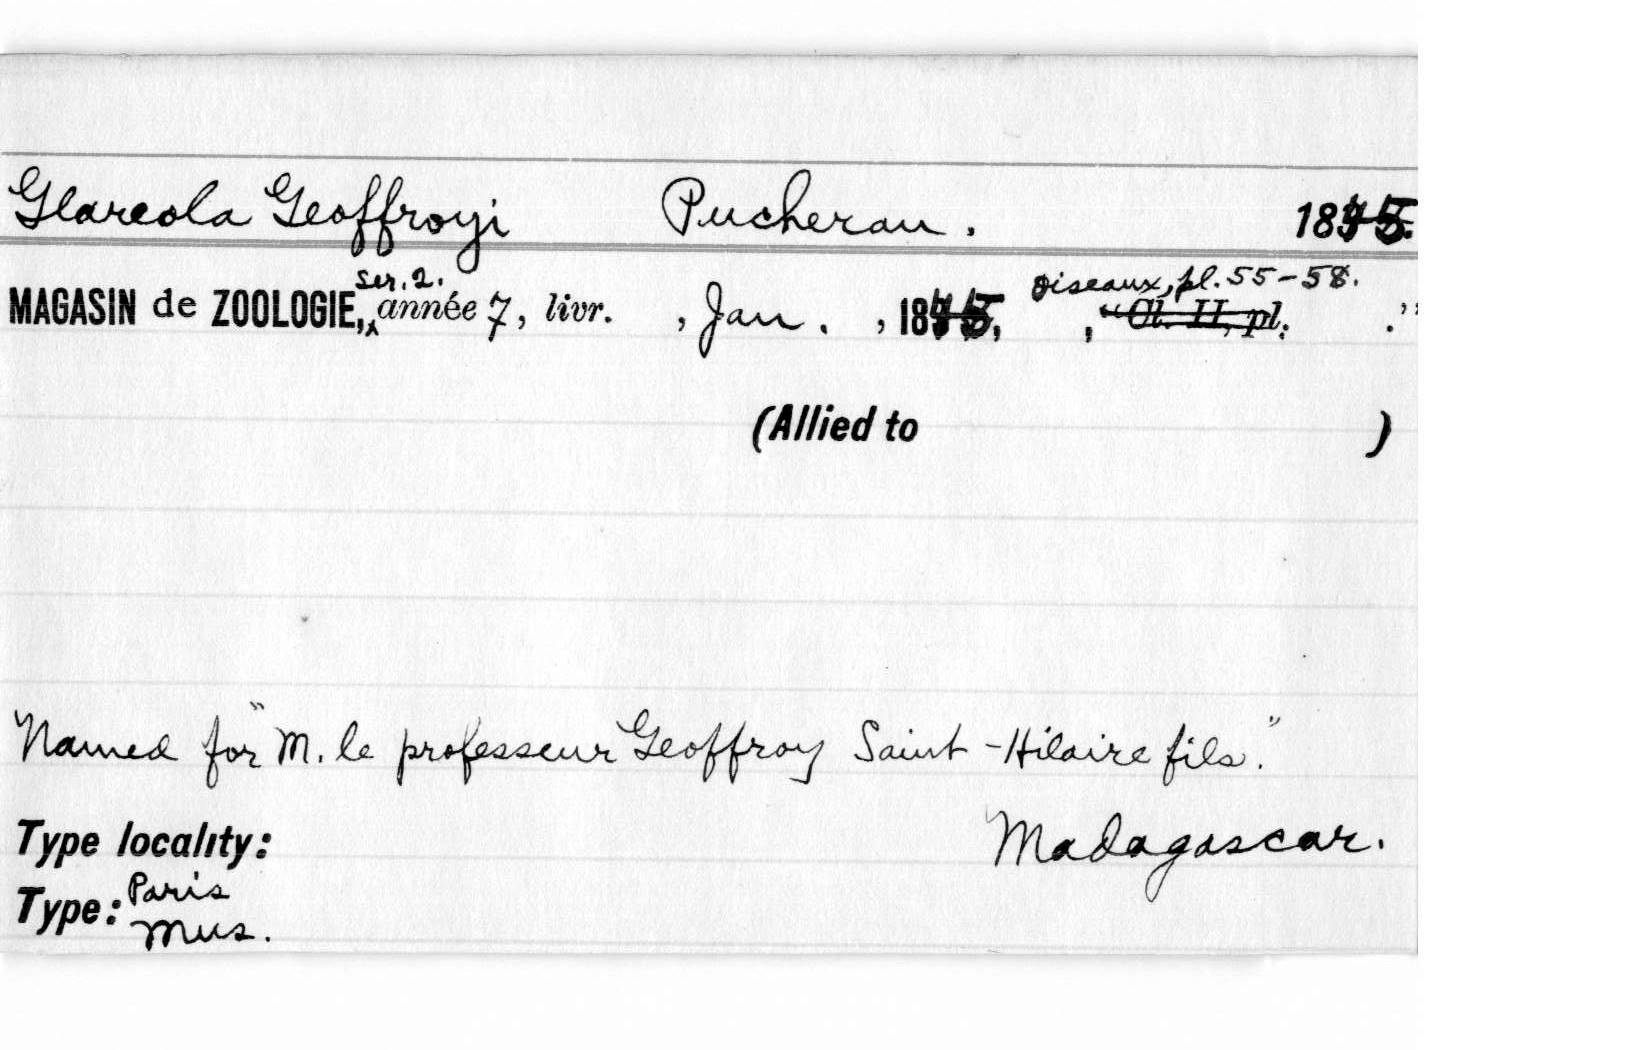 Glareola Geoffroyi Pucheran. 1845.
ser. 2. oiseaux, pl. 55-58.
MAGASIN de ZOOLOGIE, année 7, livr. , Jan. , 1845, , "Cl. II, pl. ."
(Allied to )
Named for "M. le professeur Geoffroy Saint-Hilaire fils."
Type locality: Madagascar.
Type: Paris
Mus.